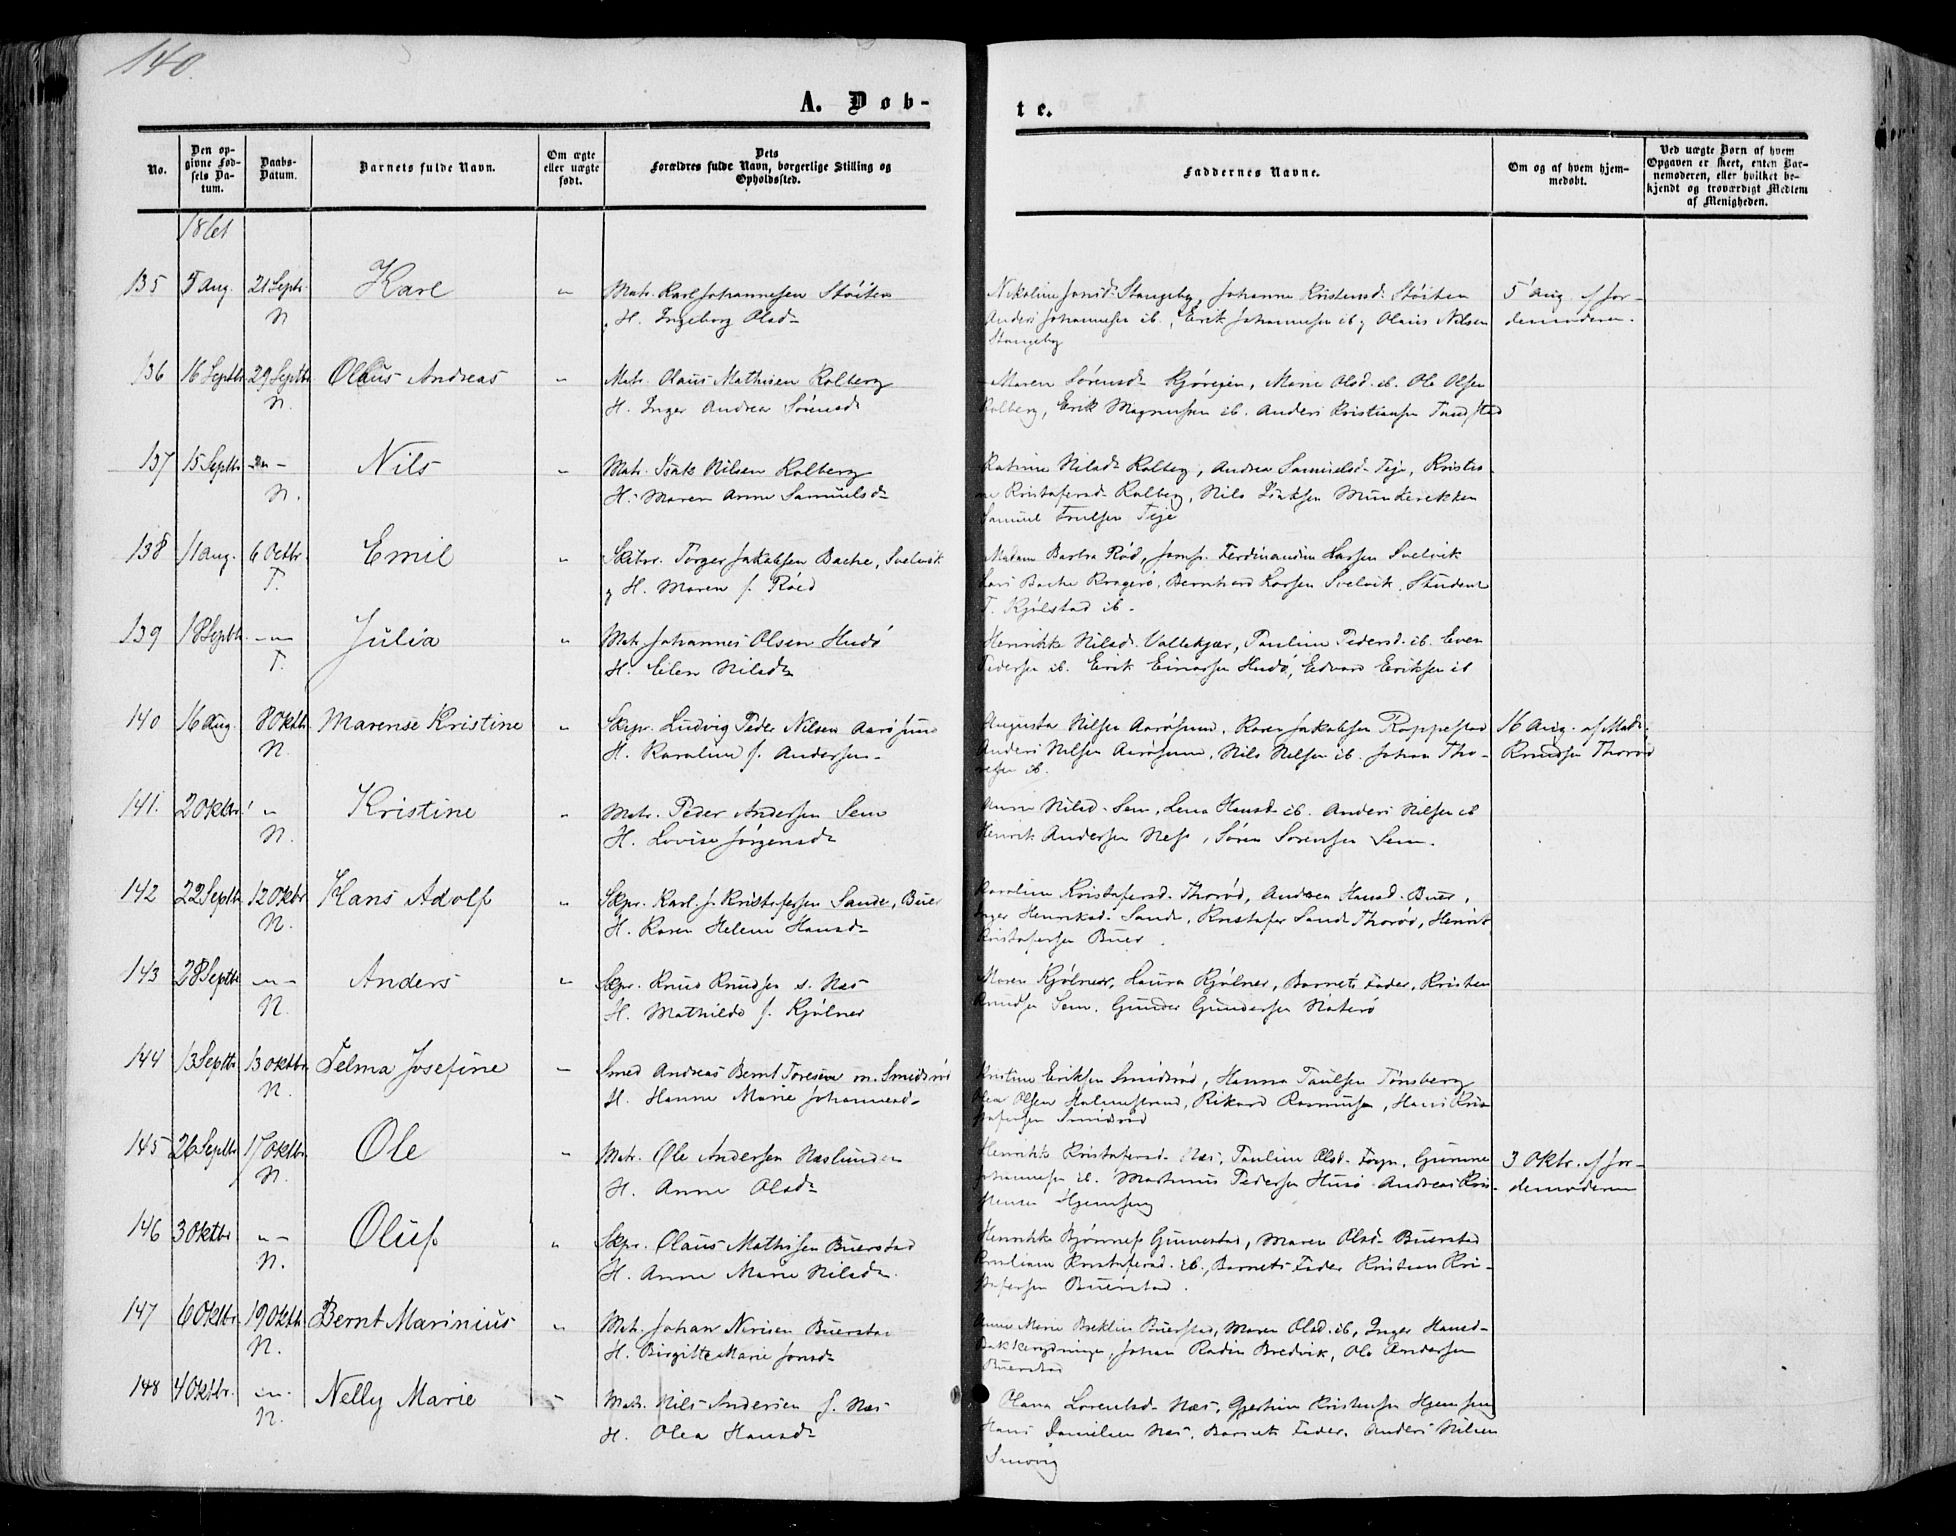 140.
A. Døb-
te.
No.
Den opgivne Fødsels Datum.
Daabs-Datum.
Barnets fulde Navn.
Om ægte eller uægte født.
Dets Forældres fulde Navn, borgerlige Stilling og Opholdssted.
Faddernes Navne.
Om og af hvem hjemmedøbt.
Ved uægte Børn af hvem Opgaven er skeet, enten Barnemoderen, eller hvilket bekjendt og troværdigt Medlem af Menigheden.
135 5 Aug. 21 Septr. N Karl " Matr. Karl Johannesen Støiten
H. Ingeborg Olsd
Nikoline Jonsd. Stangeby, Johanne Kristensd. Støiten 5 Aug. af Jor-
Anders Johannesen ib, Erik Johannesen ib, Olaus Nilsen demoderen.
Stangeby
136 16 Septbr 29 Septbr N. Olaus Andreas " Matr. Olaus Mathisen Kolberg
H. Inger Andrea Sørensd
Maren Sørensd Kjøreien, Marie Olsd. ib. Ole Olsen
Kolberg, Erik Magnussen ib. Anders Kristiansen
137 15 Septbr N. Nils " Matr. Isak Nilsen Kolberg
H. Maren Anne Samuelsd
Katrine Nilsd Kolberg, Andrea Samuelsd Teje, Kristi-
ne Kristofersd Kolberg, Nils Isaksen Munderekken
Samuel Trulsen Teje
138 11 Aug. 6 Octbr. T. Emil " Torger Jakobsen Bache, Svelvik
og H. Maren f. Røed
Madam Barbra Rød, Jomf. Ferdinandine Svelvik
Bache Kragerø, Bernhard Svelvik, Student
T. Kjølstad ib.
139 18 Septbr -"- T. Julia " Matr. Johannes Olsen Hudø
H. Elen Nilsd
Henrikke Nilsd. Vallekjær, Pauline Pedersd. ib. Even
Pedersen ib. Erik Einarsen Hudø, Edvard Eriksen ib
140 16 Aug. 8 Oktbr N. Marense Kristine " Skpr. Ludvig Peder Nilsen Aarøsund
H. Karoline f. Andersen
Augusta Nilsen Aarøsund, Karen Jakobsen Roppestad 16 Aug. af Mad.
Anders Nilsen Aarøsund, Nils Nilsen ib. Johan Tho- Knudsen Thorød
resen ib.
141. 2 Oktbr " N. Kristine " Matr. Peder Andersen Sem
H. Lovise Jørgensd
Anne Nilsd. Sem, Lena Hansd. ib. Anders Nilsen ib
Henrik Andersen Nes, Søren Sørensen Sem.
142 22 Septbr 12 Oktbr N. Hans Adolf " Skpr. Karl J. Kristofersen Sande, Buer
H. Karen Helene Hansd
Karoline Kristofersd. Thorød, Andrea Hansd. Buer,
Inger Henriksd. Sande, Kristofer Sand Thorød, Henrik
Kristofersen Buer.
143 28 Septbr -"- N. Anders " Skpr. Knud Knudsen s. Næs
H. Mathilde f. Kjølner
Maren Kjølner, Laura Kjølner, Barnets Fader, Kristen
Knudsen Sem, Gunder Gundersen Noterø
144 13 Septbr 13 Oktbr N. Selma Josefine Smed Andreas Bernt Toresen m. Smidsrød
H. Hanne Marie Johannesd
Kristine Eriksen Smidsrød, Hanna Paulsen Tønsberg
Olea Olsen Holmestrand, Rikard Rasmussen, Hans Kris-
tofersen Smidsrød
145 26 Septbr 17 Oktbr N. Ole " Matr. Ole Andersen Neslunden
H. Anne Olsd
Henrikke Kristofersd. Næs, Pauline Olsd Foyn, 3 Oktbr. af Jor-
Johannesen ib. Martinus Pedersen Husø Andreas Kris- demoderen
tensen Hjemseng
146 3 Oktbr -"- N. Oluf " Skpr. Olaus Mathisen Buerstad
H. Anne Marie Nilsd.
Henrikke Bjønnes Gunnestad, Maren Olsd Buerstad
Kristofersd. ib., Barnets Fader Kristian Kri-
stofersen Buerstad.
147 6 Oktbr. 19 Oktbr N. Bernt Marinius " Matr. Johan Buerstad
H. Birgitte Marie Jonsd
Anne Marie Buerstad, Maren Olsd. ib, Inger Hansd
Johan Bredvik, Ole Andersen
Buerstad
148 4 Oktbr. -"- N. Nelly Marie " Matr. Nils Andersen s. Næs
H. Olea Hansd
Olava Lorentsd Næs, Kristensen Hjemseng
Hans Danielsen Næs, Barnets Fader, Anders Nilsen
Smovig